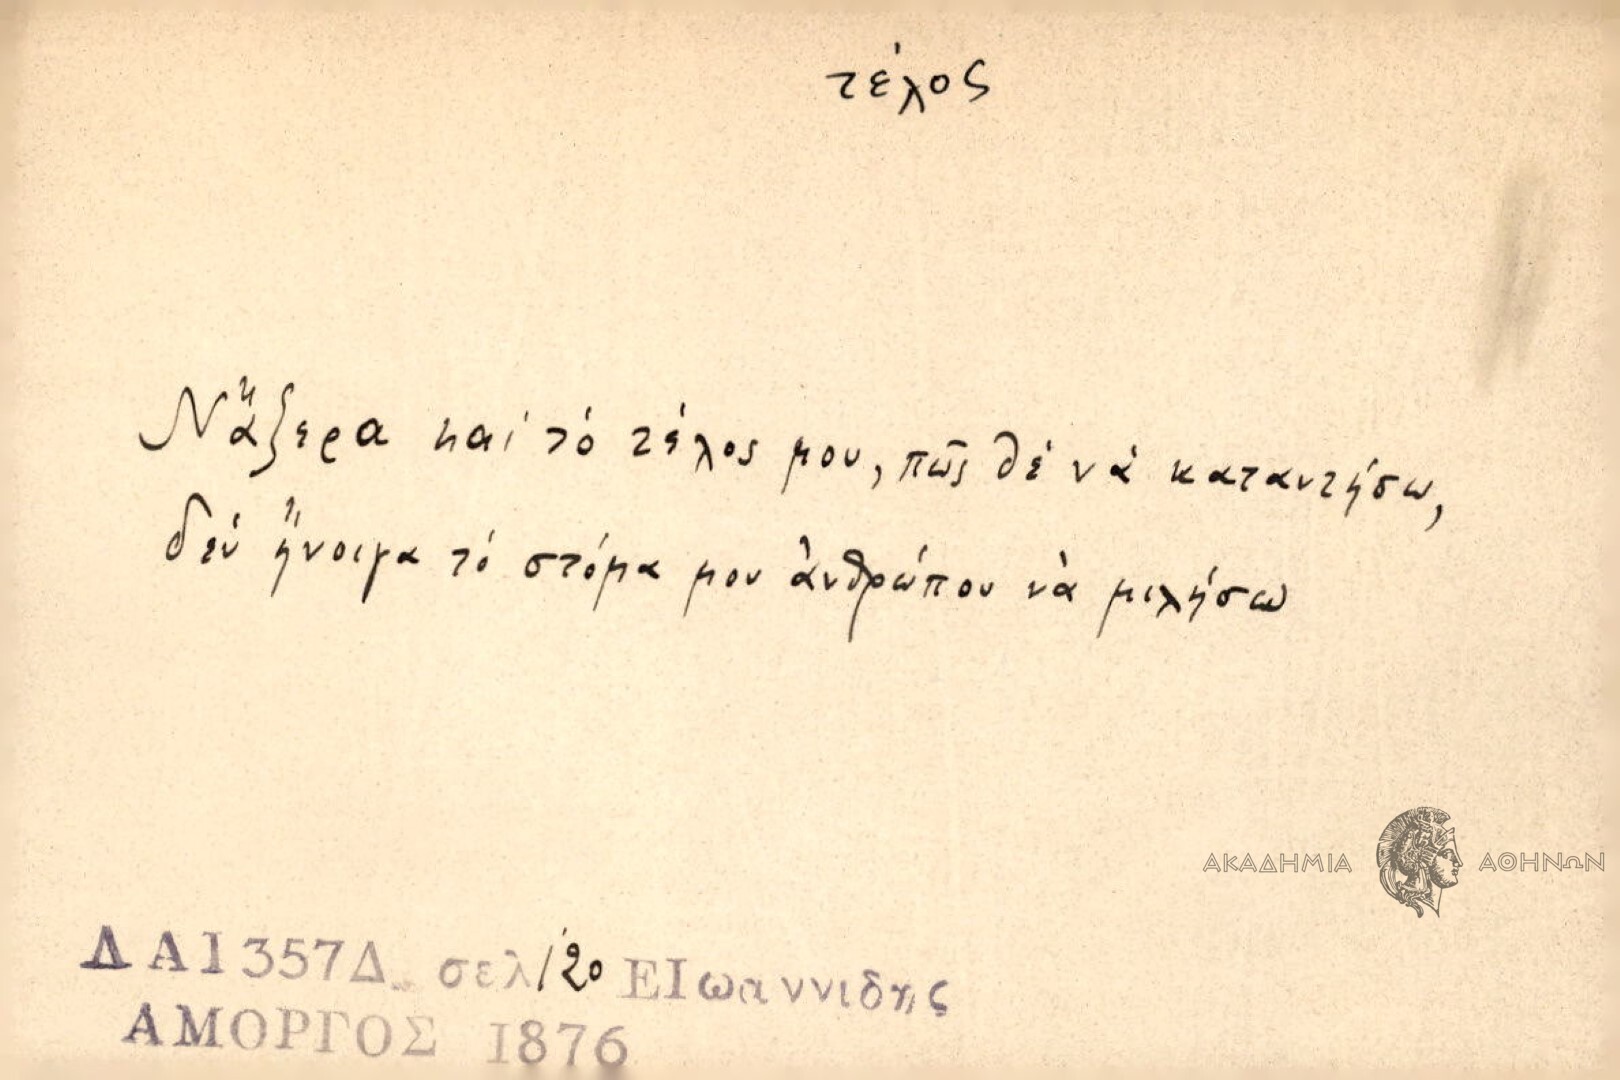 τέλος
Νἄξερα καὶ τὸ τέλος μου, πῶς θὲ νὰ καταντήσω,
δὲν ἤνοιγα τὸ στόμα μου ἀνθρώπου νὰ μιλήσω
ΑΚΑΔΗΜΙΑ ΑΘΗΝΩΝ
ΔΑ1357Δ. σελ 120 ΕΙωαννιδης
ΑΜΟΡΓΟΣ 1876